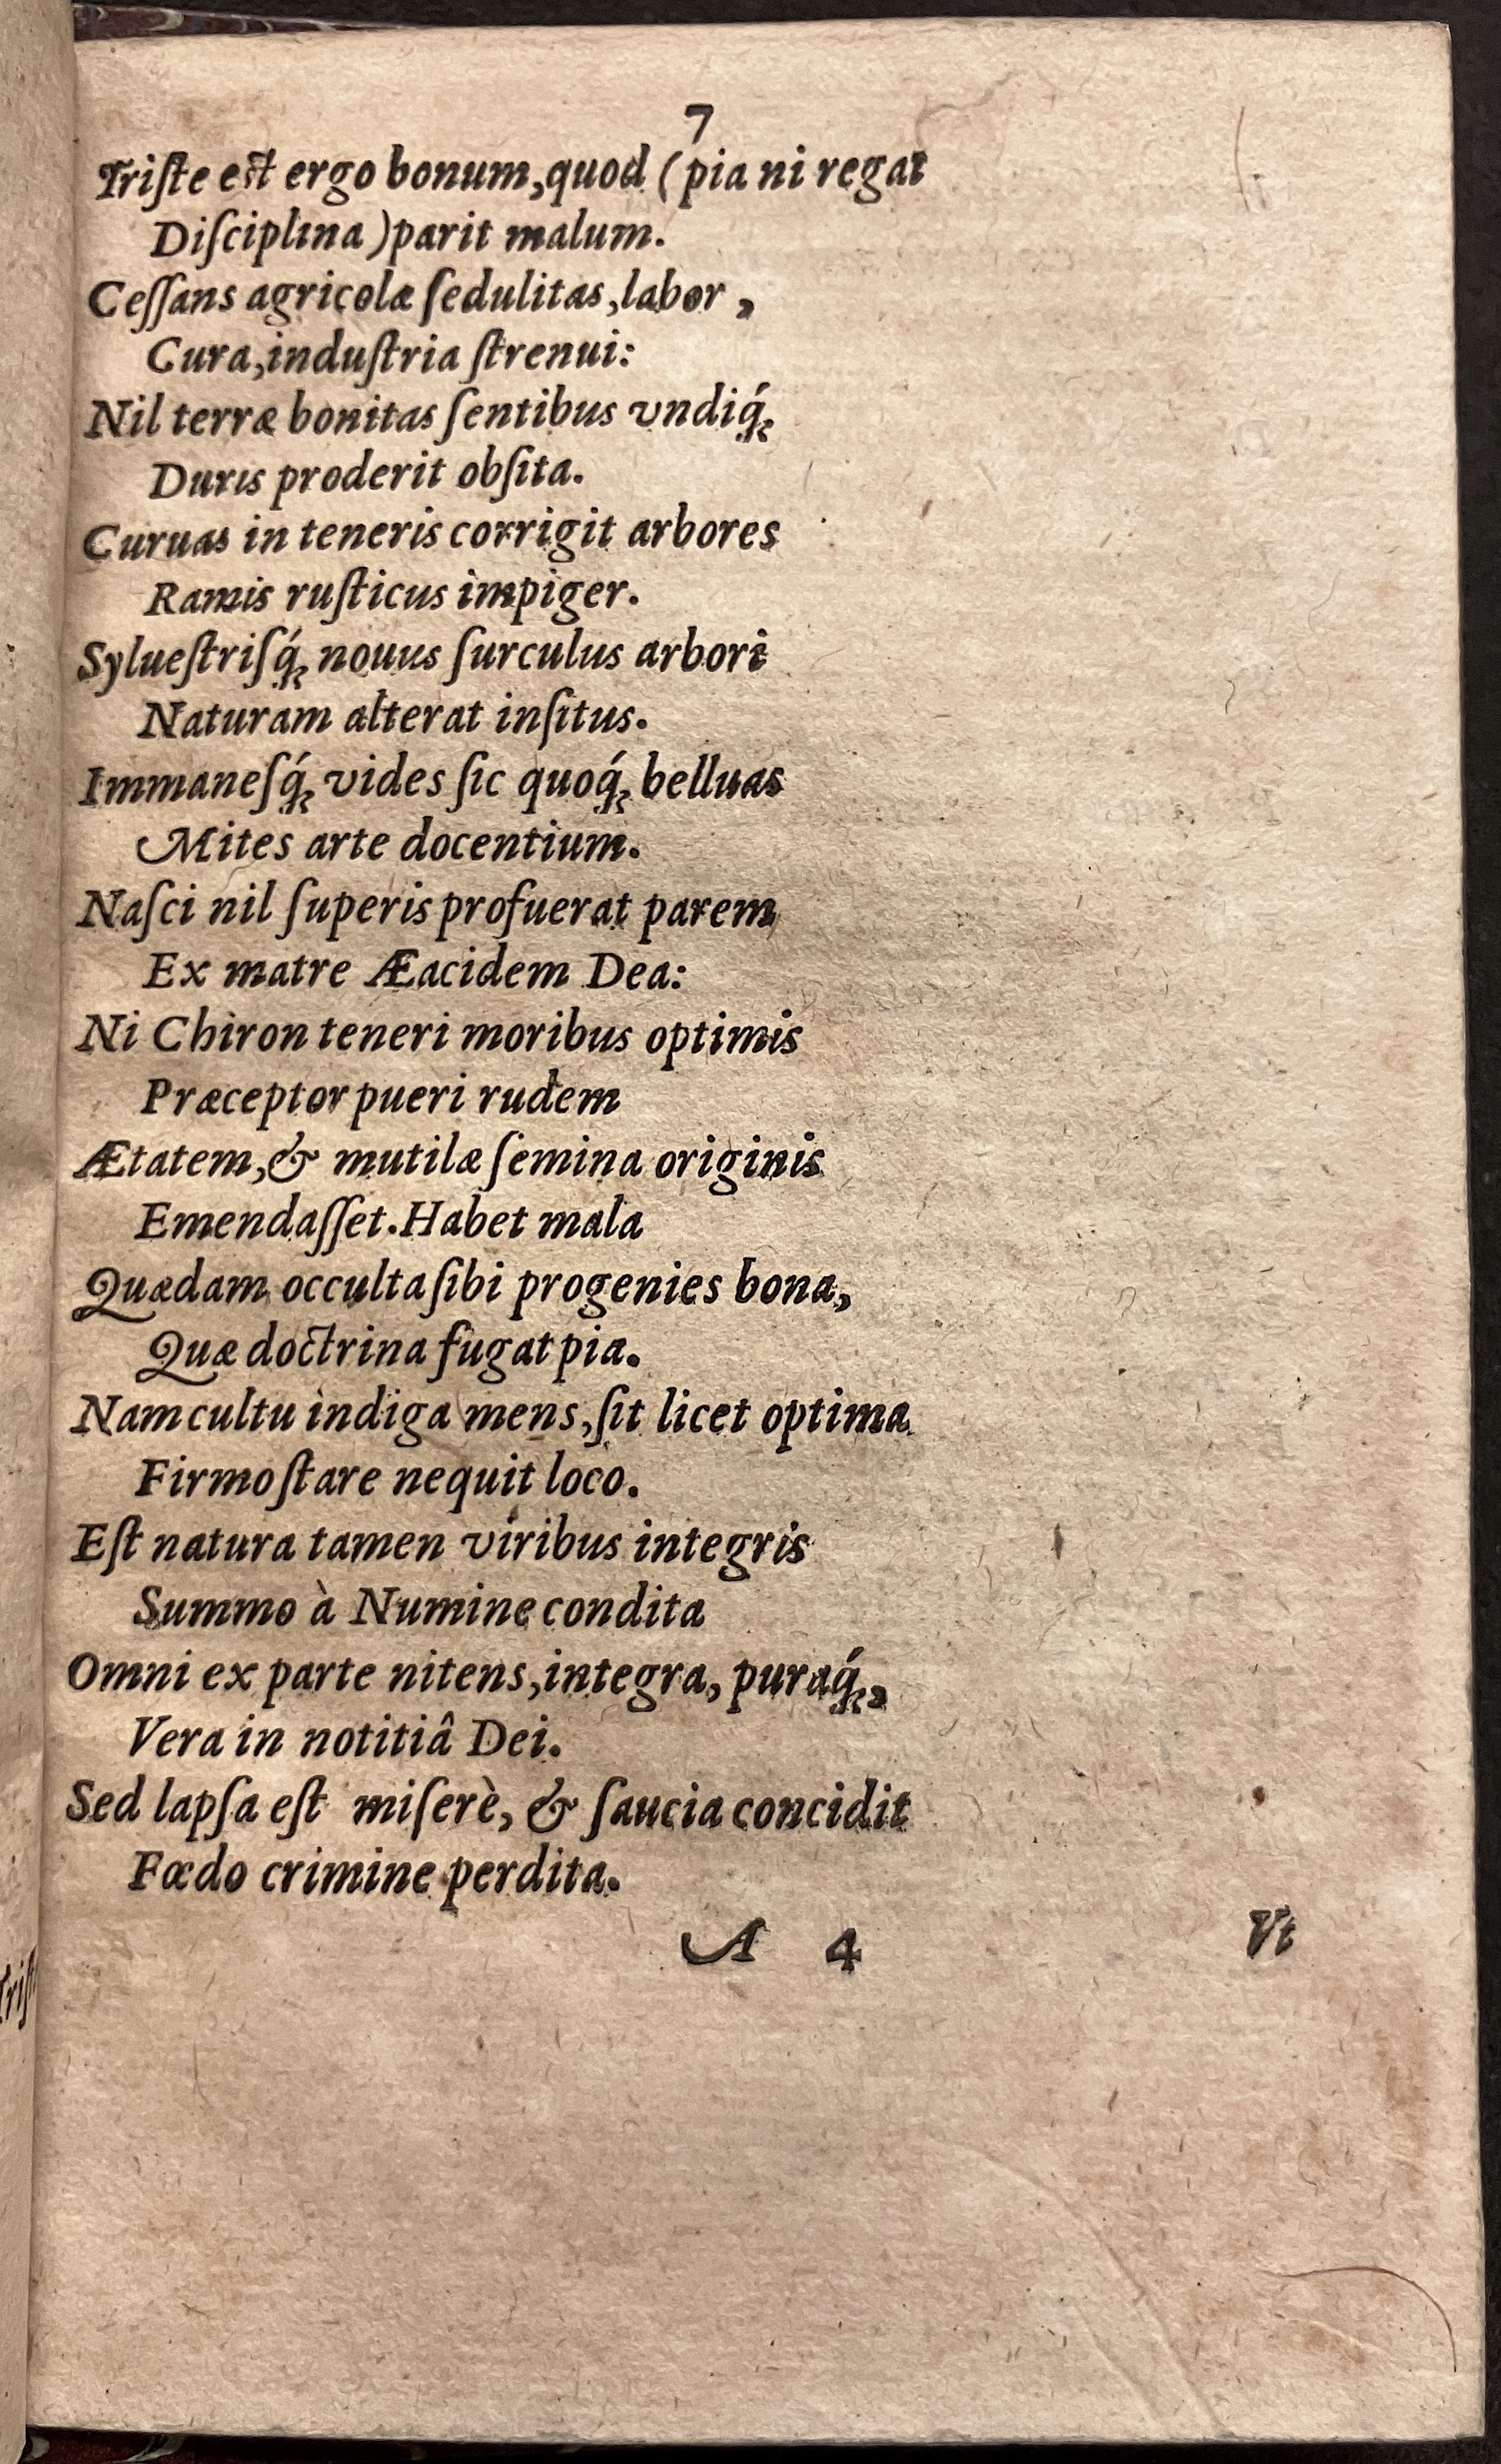 7
Triſte eſt ergo bonum, quod (pia ni regat
Diſciplina) parit malum.
Ceſſans agricolæ ſedulitas, labor,
Cura, induſtria ſtrenui:
Nil terræ bonitas ſentibus vndiq́;
Duris proderit obſita.
Curuas in teneris corrigit arbores
Ramis ruſticus impiger.
Sylueſtriſq́; nouus ſurculus arbori
Naturam alterat inſitus.
Immaneſq́; vides ſic quoq́; belluas
Mites arte docentium.
Naſci nil ſuperis profuerat parem
Ex matre Æacidem Dea:
Ni Chiron teneri moribus optimis
Præceptor pueri rudem
Ætatem, & mutilæ ſemina originis
Emendaſſet. Habet mala
Quædam occulta ſibi progenies bona,
Quæ doctrina fugat pia.
Nam cultu indiga mens, ſit licet optima
Firmo ſtare nequit loco.
Eſt natura tamen viribus integris
Summo à Numine condita
Omni ex parte nitens, integra, puraq́;,
Vera in notitiâ Dei.
Sed lapſa eſt miſerè, & ſaucia concidit
Fœdo crimine perdita.
A 4 Vt